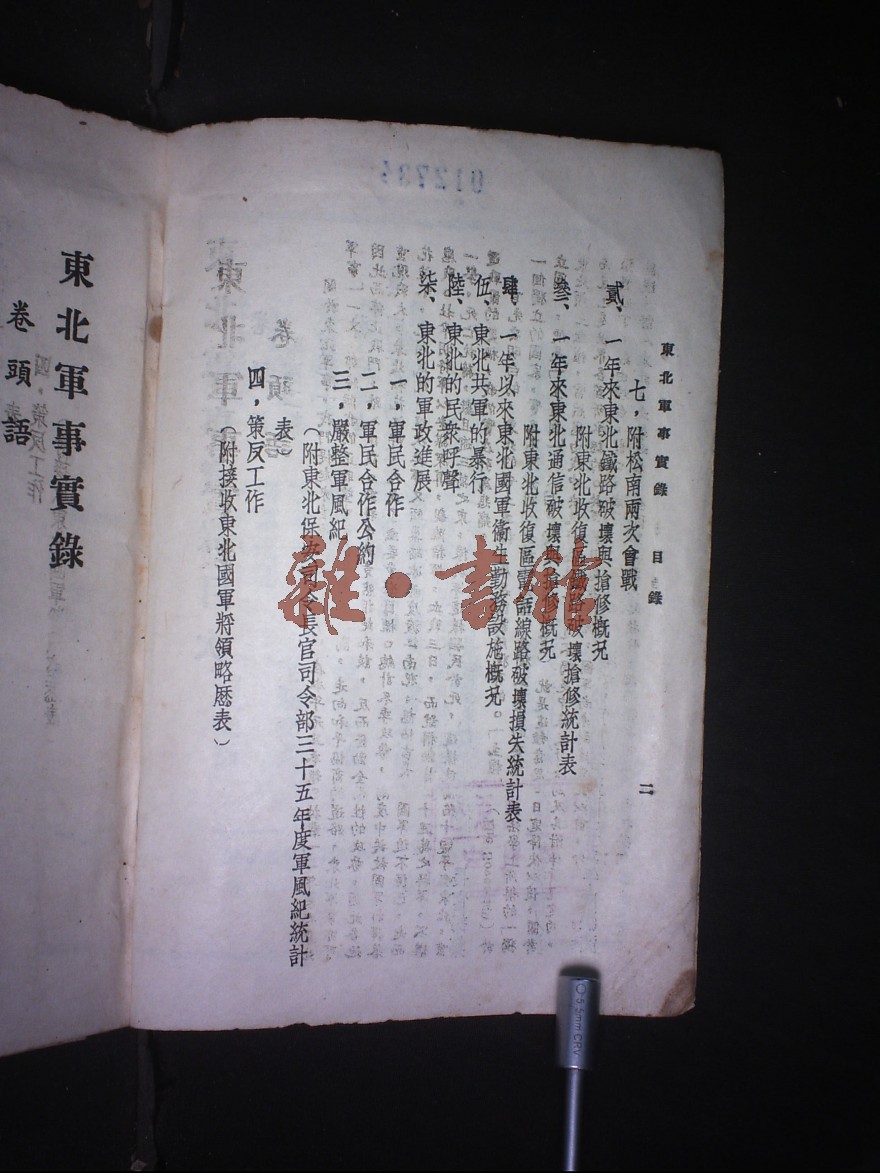 東北軍事實錄 目錄
二
七，附松南兩次會戰
貳、一年來東北鐵路破壞與搶修概況
附東北收復區鐵路破壞搶修統計表
叁、一年來東北通信破壞與搶修概況
附東北收復區電話線路破壞損失統計表
肆、一年以來東北國軍衛生勤務設施概況
伍、東北共軍的暴行
陸、東北的民衆呼聲
柒、東北的軍政進展
一，軍民合作
二，軍民合作公約
三，嚴整軍風紀
（附東北保安司令長官司令部三十五年度軍風紀統計
表）
四，策反工作
（附接收東北國軍將領略歷表）
東北軍事實錄
卷頭語
雜·書館
012734
5.5mm CRV